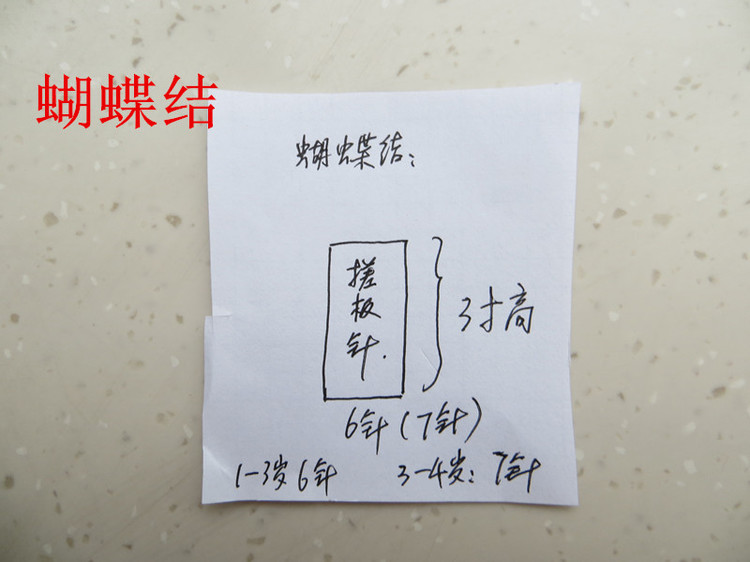 蝴蝶结
蝴蝶结:
搓板针.
3寸高
6针(7针)
1-3岁6针 3-4岁:7针